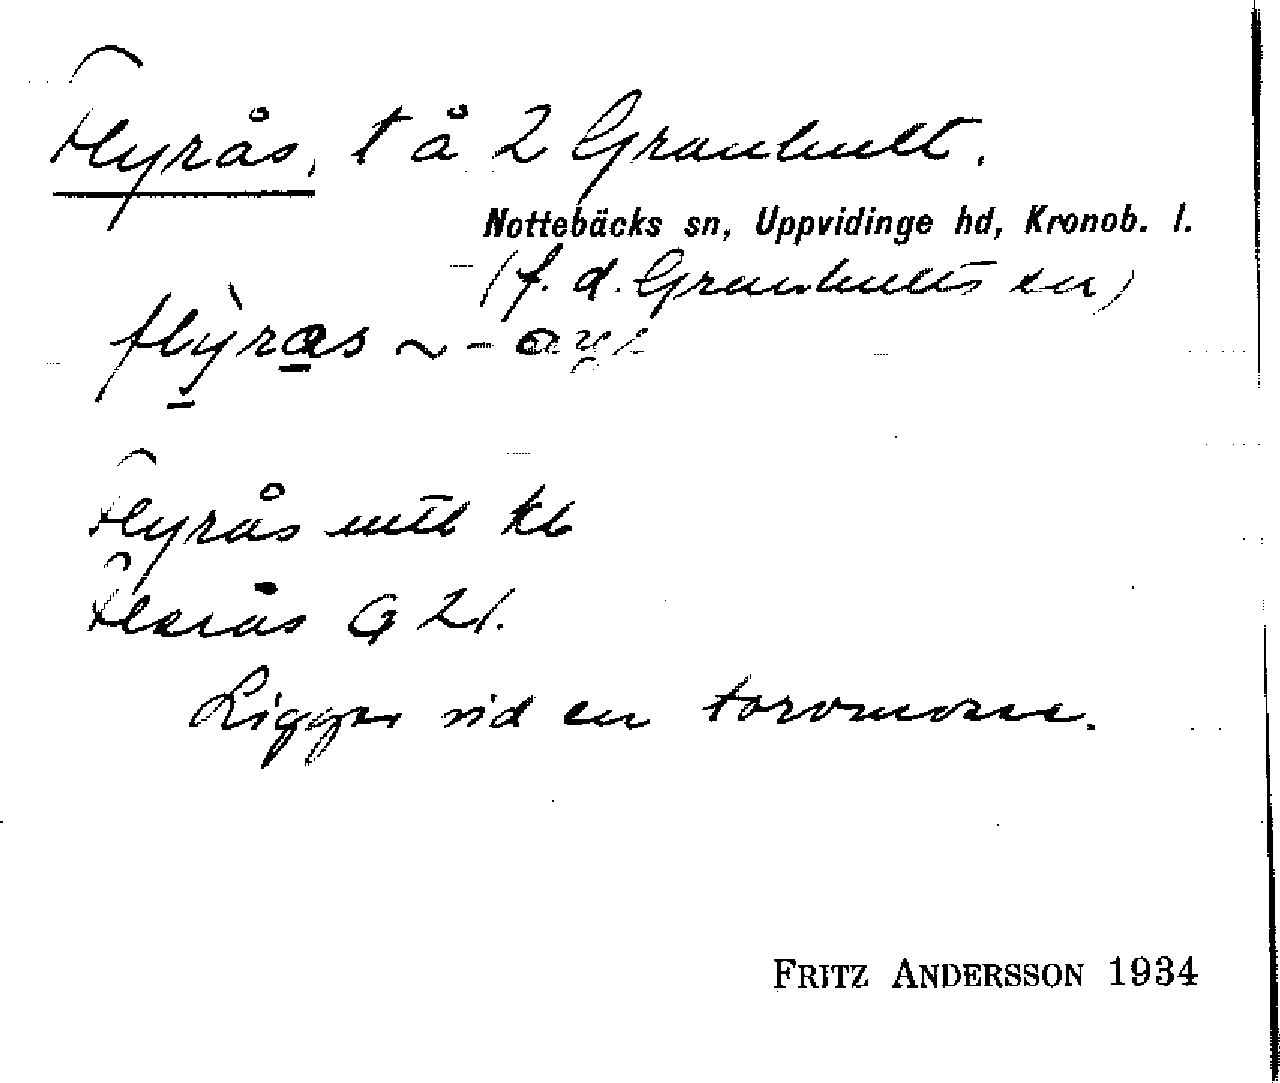 Flyrås, t å 2 Granhult.
Nottebäcks sn, Uppvidinge hd, Kronob. l.
(f. d. Granhults sn)
flỳras ~ -a
Flyrås mtl kb
Flarås G 21.
Ligger vid en torvmosse.
FRITZ ANDERSSON 1934